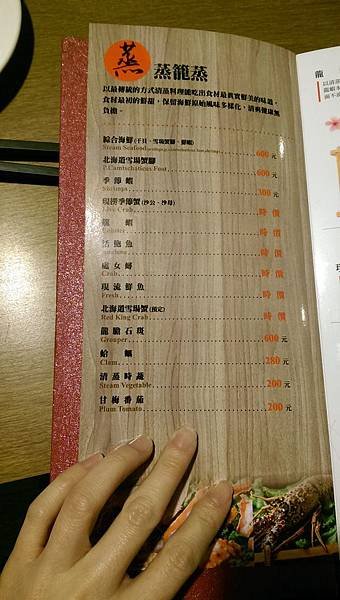 蒸
蒸籠蒸
以最傳統的方式清蒸料理能吃出食材最真實鮮美的味道。
食材最初的鮮甜，保留海鮮原始風味多樣化，清爽健康無
負擔。
綜合海鮮(干貝、雪場蟹腳、鮮蝦)
Steam Seafood 600元
北海道雪場蟹腳
P.Camtschaticus Foot 600元
季節蝦
Shrimps 300元
現撈季節蟹(沙公、沙母)
Live Crab 時價
龍蝦
Lobster 時價
活鮑魚
時價
處女蟳
Crab 時價
現流鮮魚
Fresh 時價
北海道雪場蟹(預定)
Red King Crab 時價
龍膽石斑
Grouper 600元
蛤蠣
Clam 280元
清蒸時蔬
Steam Vegetable 200元
甘梅番茄
Plum Tomato 200元
龍